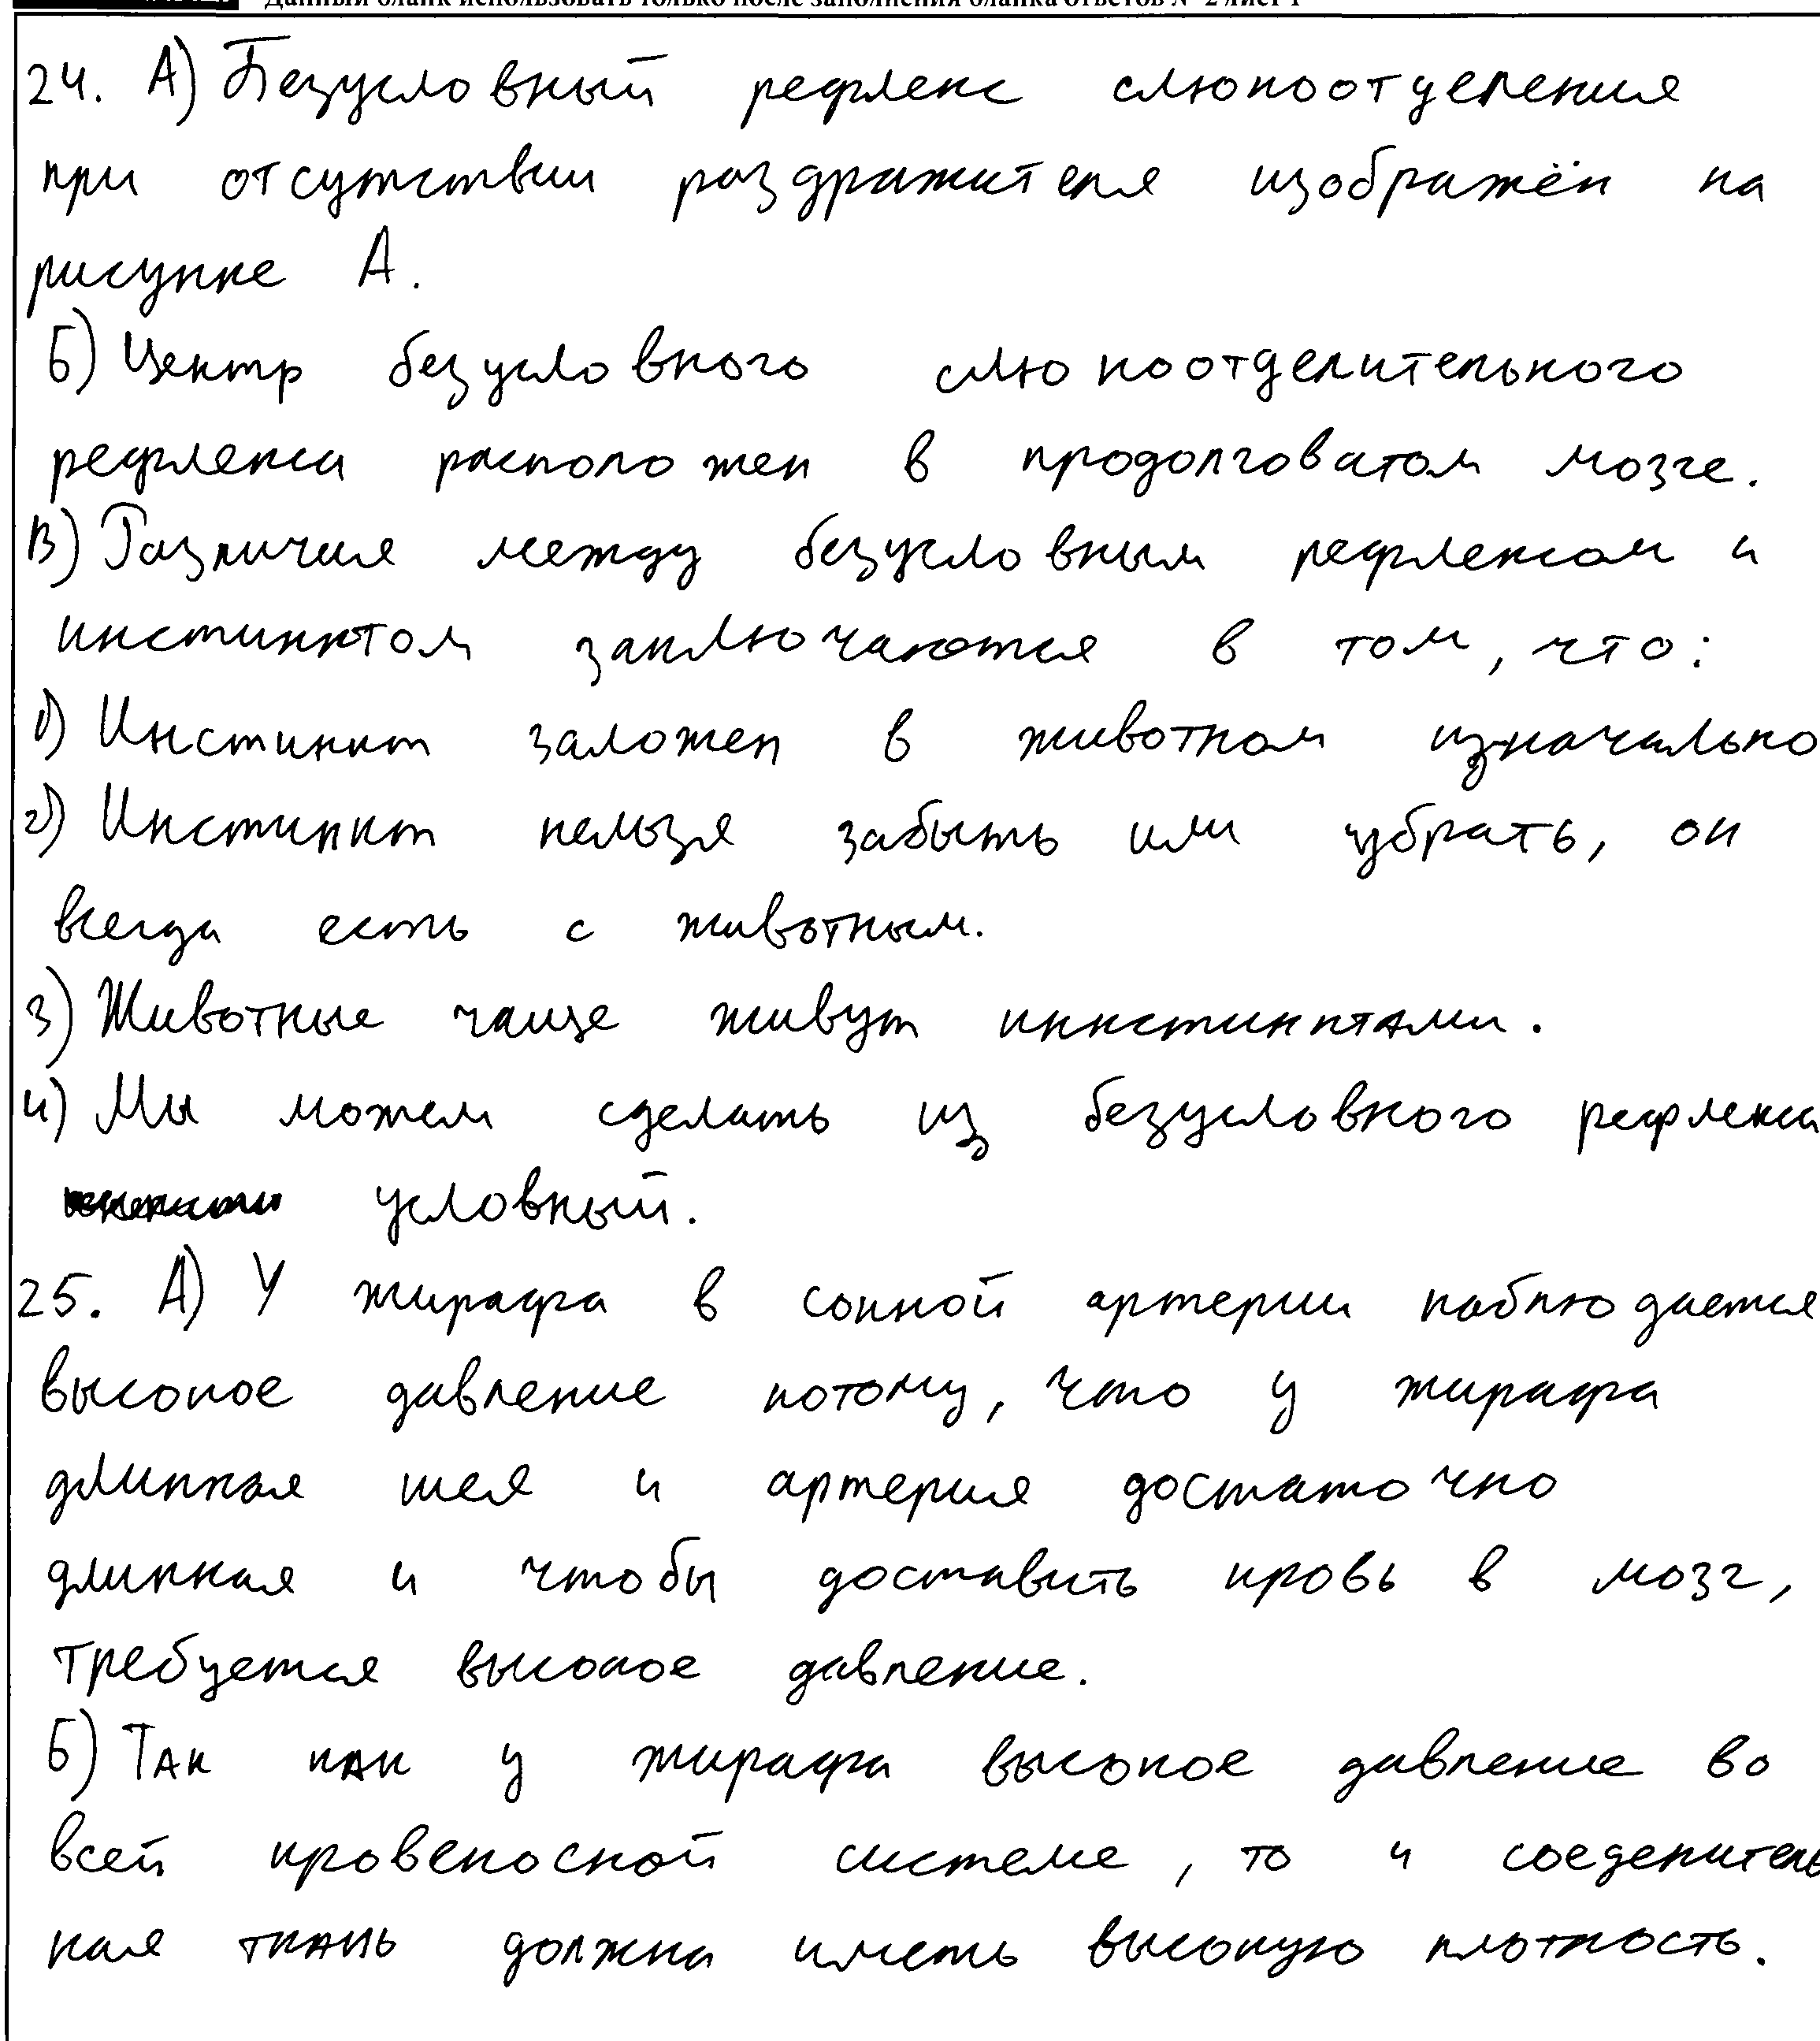 Данный бланк использовать только после заполнения бланка ответов № 2 лист 1
24. А) Безусловный рефлекс слюноотделения
при отсутствии раздражителя изображён на
рисунке А.
Б) Центр безусловного слюноотделительного
рефлекса расположен в продолговатом мозге.
В) Различия между безусловным рефлексом и
инстинктом заключаются в том, что:
1) Инстинкт заложен в животном изначально
2) Инстинкт нельзя забыть или убрать, он
всегда есть с животным.
3) Животные чаще живут инкстинктами.
4) Мы можем сделать из безусловного рефлекса
условный.
25. А) У жирафа в сонной артерии наблюдается
высокое давление потому, что у жирафа
длинная шея и артерия достаточно
длинная и чтобы доставить кровь в мозг,
требуется высокое давление.
Б) Так как у жирафа высокое давление во
всей кровеносной системе, то и соеденитель
ная ткань должна иметь высокую плотность.